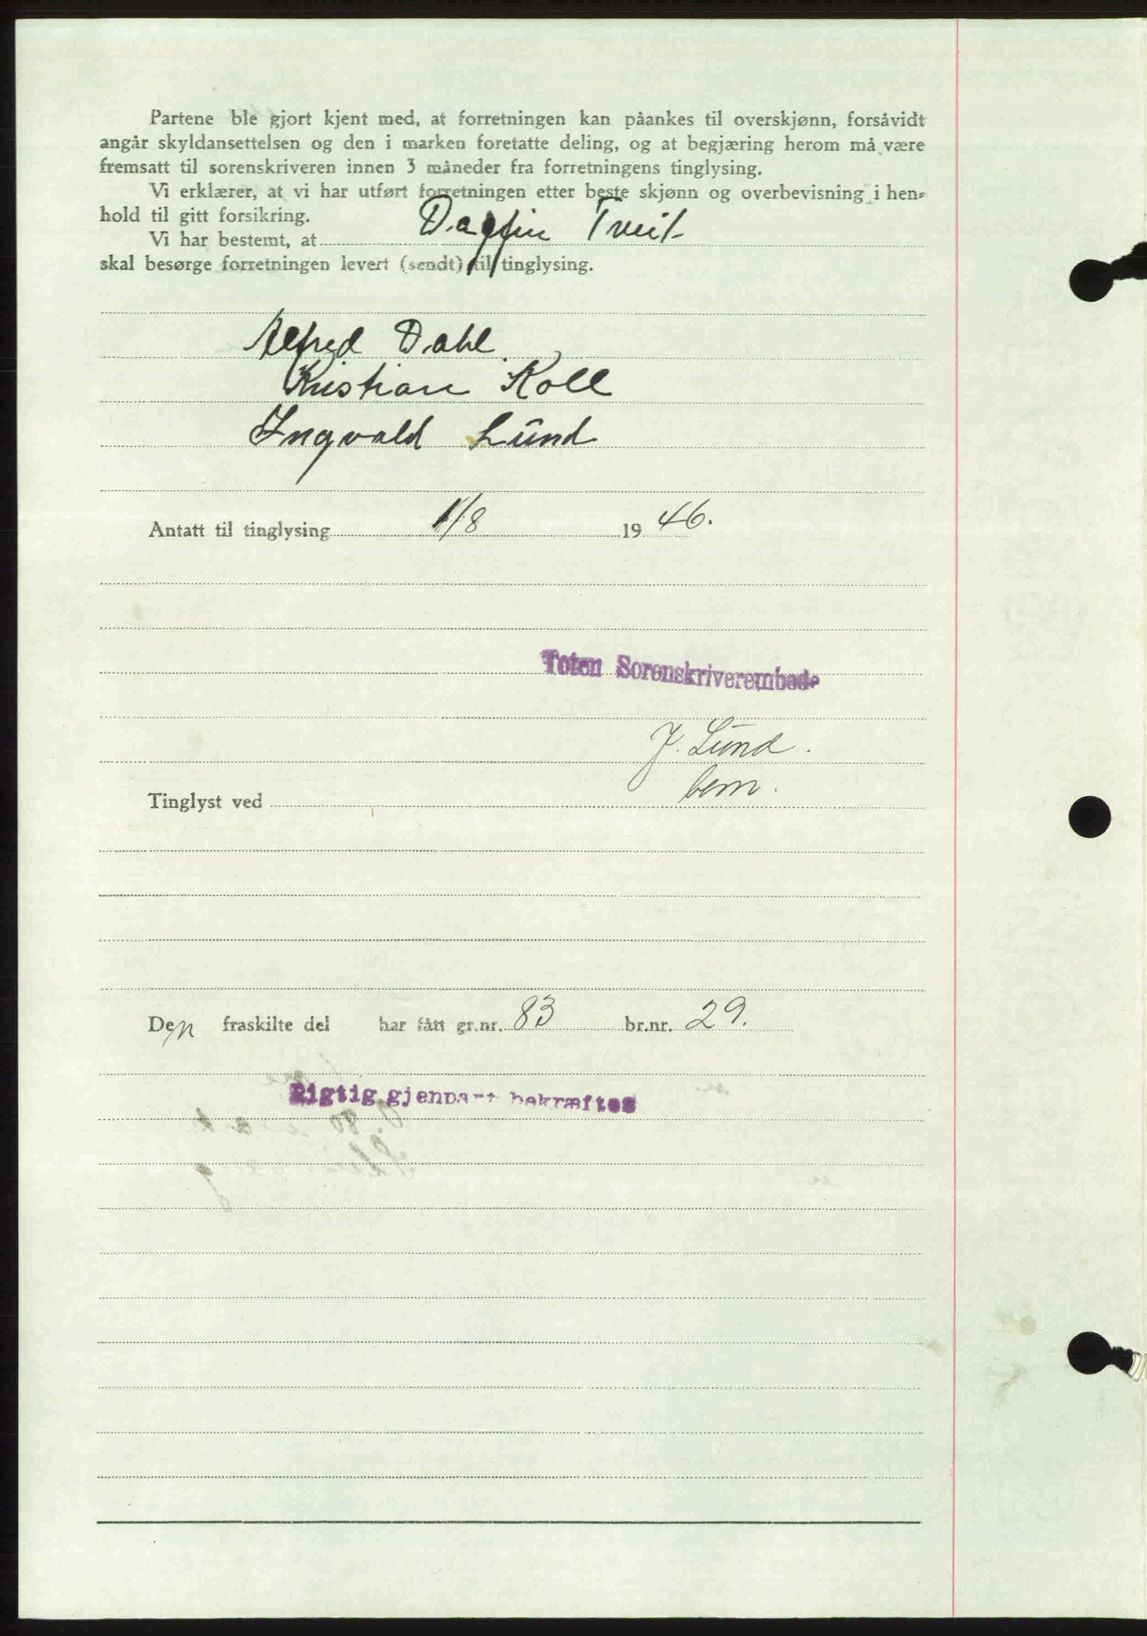 Partene ble gjort kjent med, at forretningen kan påankes til overskjønn, forsåvidt
angår skyldansettelsen og den i marken foretatte deling, og at begjæring herom må være
fremsatt til sorenskriveren innen 3 måneder fra forretningens tinglysing.
Vi erklærer, at vi har utført forretningen etter beste skjønn og overbevisning i hen-
hold til gitt forsikring.
Vi har bestemt, at Dagfin Tveit
skal besørge forretningen levert (sendt) til tinglysing.
Alfred Dahl
Kristian Koll
Ingvald Lund
Antatt til tinglysing 1/8 1946.
Toten Sorenskriverembede
J. Lund.
bem.
Tinglyst ved
Den fraskilte del har fått gr.nr. 83 br.nr. 29.
Rigtig gjenpart bekræftes